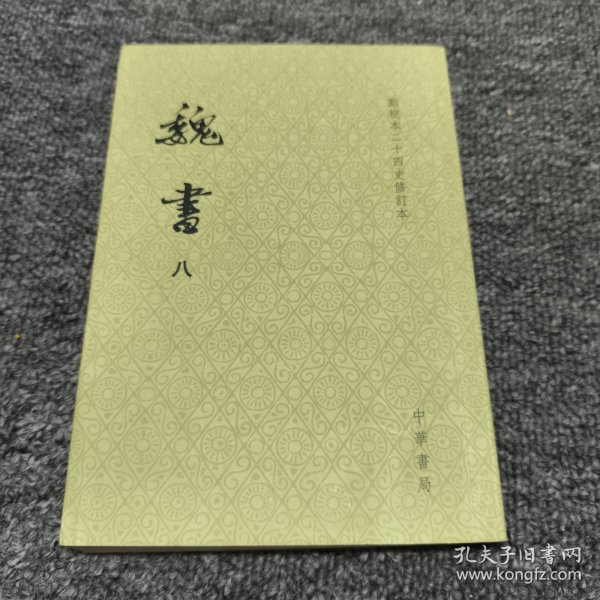 點校本二十四史修訂本
魏書
八
中華書局
孔夫子旧書网
www.kongfz.com